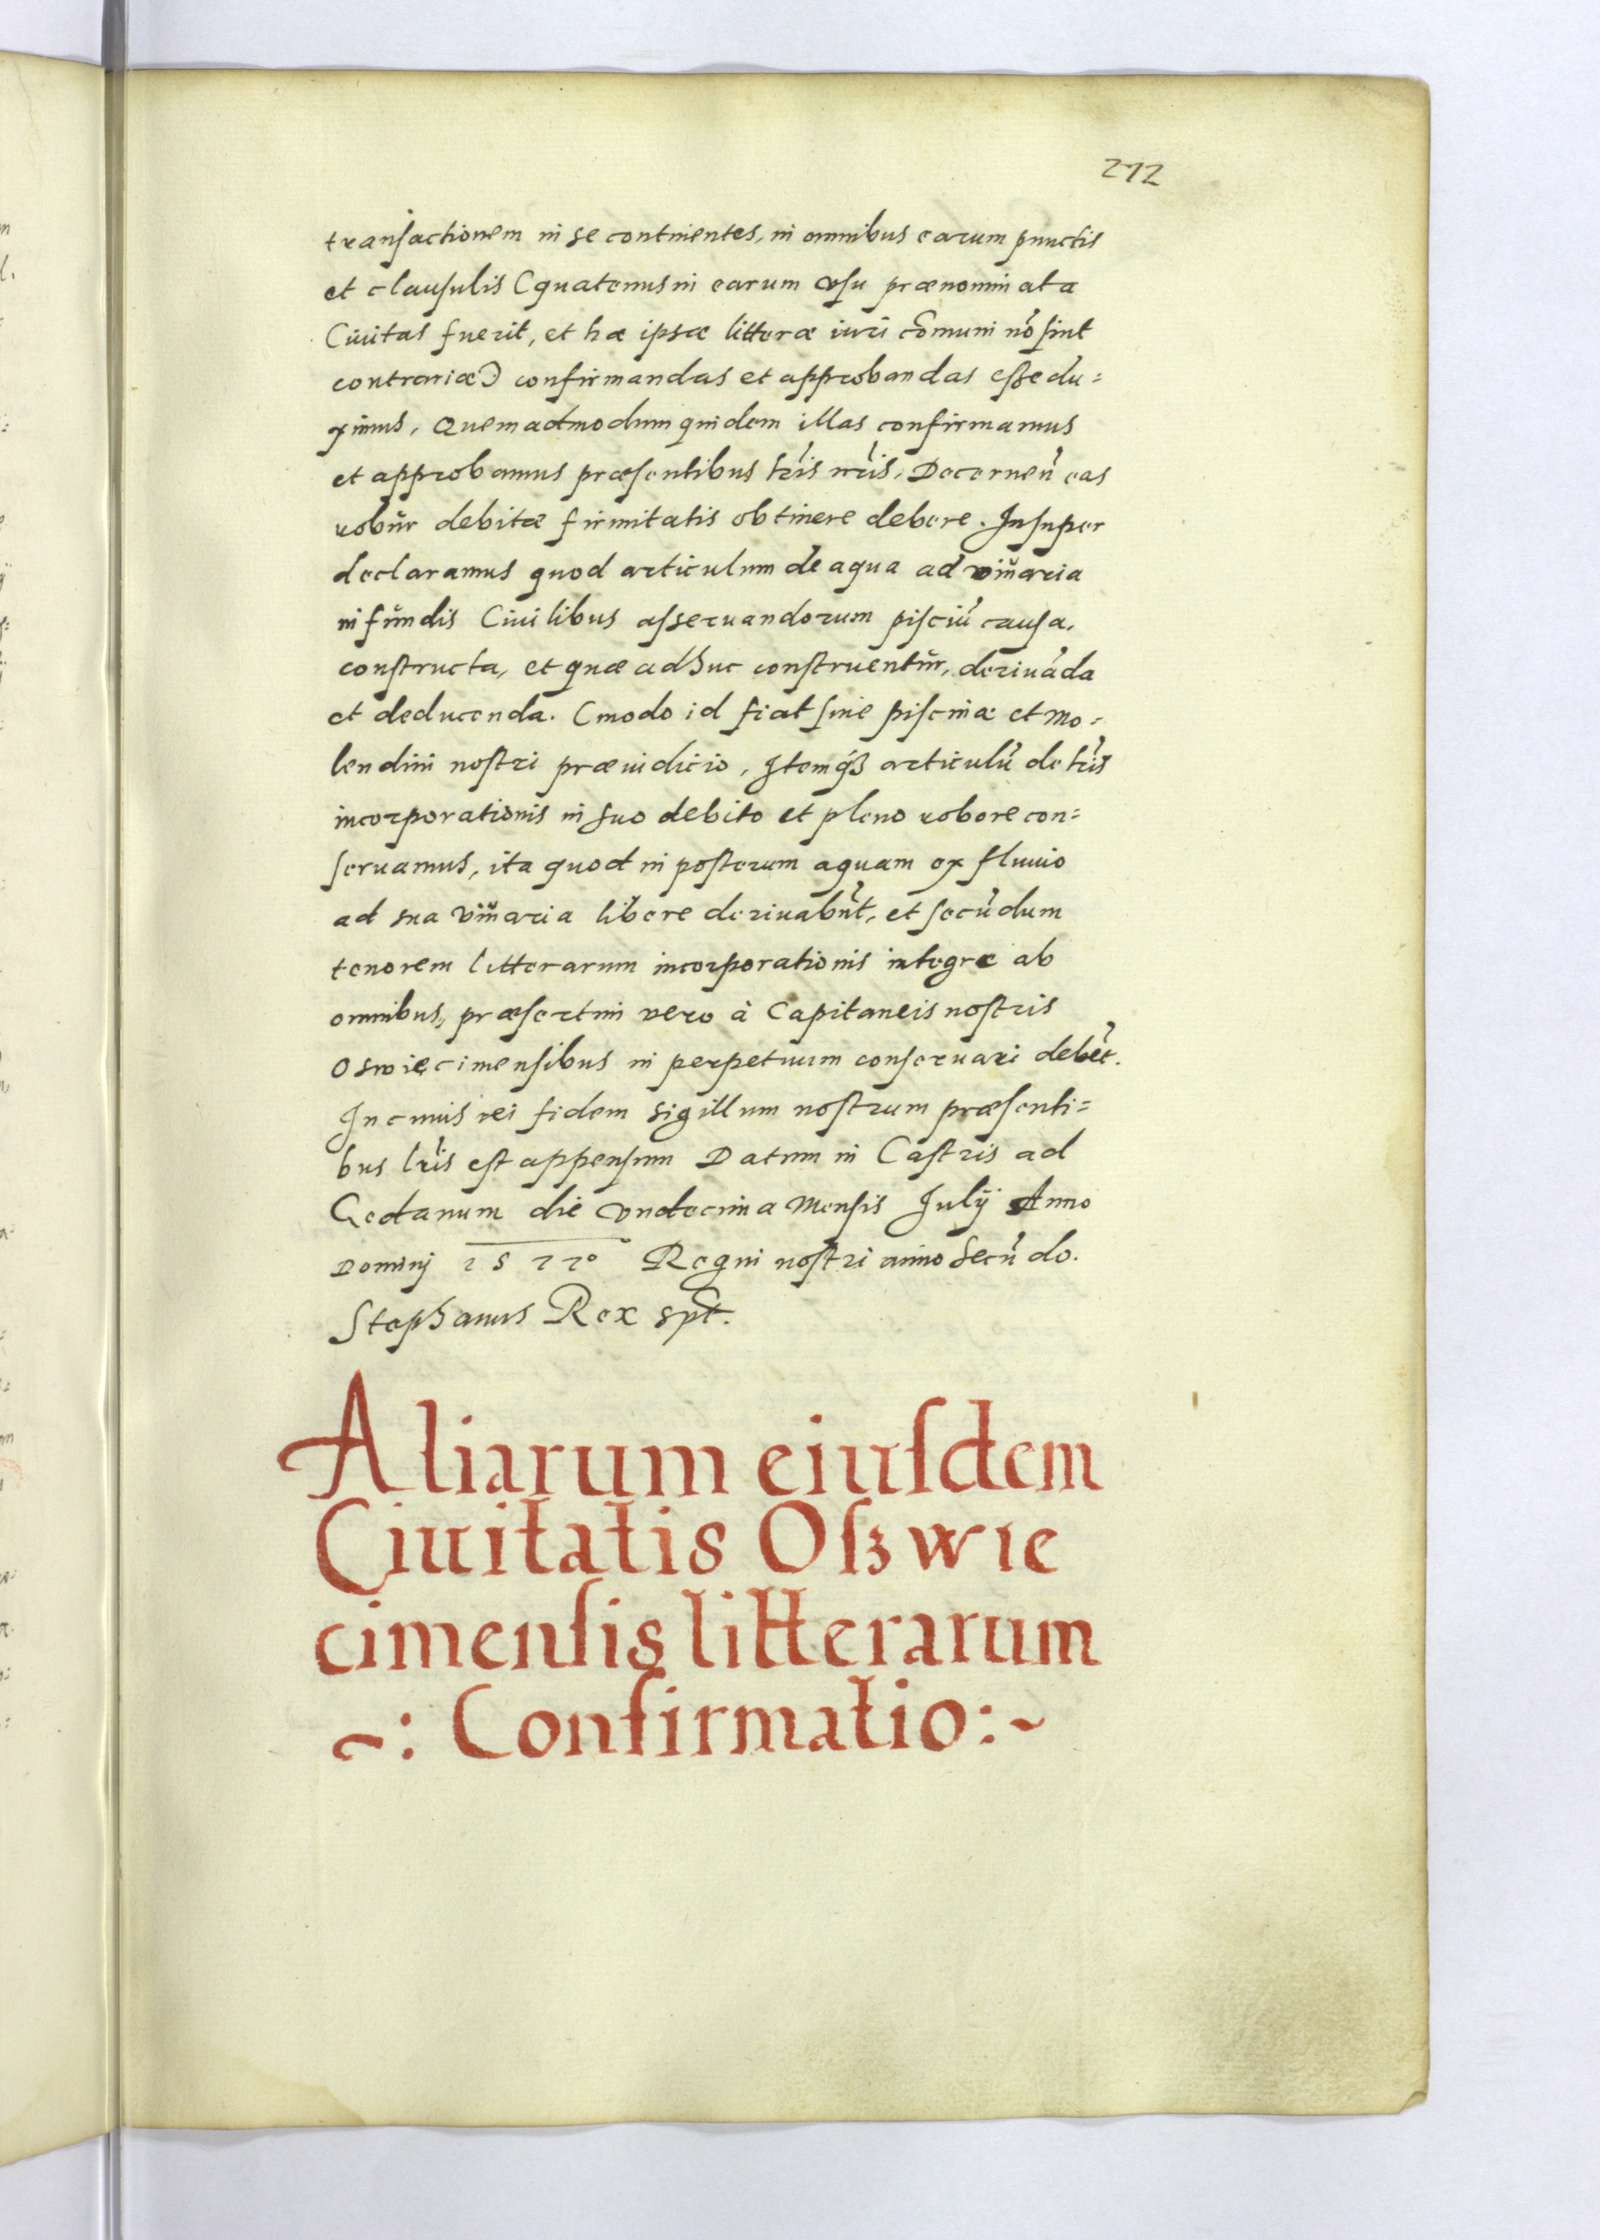 272
transactionem in se continentes, in omnibus earum punctis
et clausulis (quatenus in earum vsu prænominata
Ciuitas fuerit, et hæ ipsæ litteræ iuri cōmuni nō sint
contrariæ) confirmandas et approbandas esse du=
ximus, Quemadmodum quidem illas confirmamus
et approbamus præsentibus lr̃is nr̃is, Decerneñ eas
robur debitæ firmitatis obtinere debere. Insuper
declaramus quod articulum de aqua ad viuaria
in fundis Ciuilibus asseruandorum pisciũ causa,
constructa, et quæ adhuc construentur, deriuãda
et deducenda. (modo id fiat sine piscinæ et Mo=
lendini nostri præiudicio, Itemq́ꝫ articulũ de lr̃is
incorporationis in suo debito et pleno robore con=
seruamus, ita quod in posterum aquam ex fluuio
ad sua viuaria libere deriuabũt, et secũdum
tenorem litterarum incorporationis integre ab
omnibus, præsertim vero à Capitaneis nostris
Oswiecimensibus in perpetuum conseruari debẽt.
In cuius rei fidem sigillum nostrum præsenti=
bus lr̃is est appensum Datum in Castris ad
Gedanum die vndecima Mensis Julij Anno
Dominj 1577º Regni nostri anno secũdo.
Stephanus Rex spt̃.
Aliarum eiusdem
Ciuitatis Oſʒwie
cimensis litterarum
~: Confirmatio:~